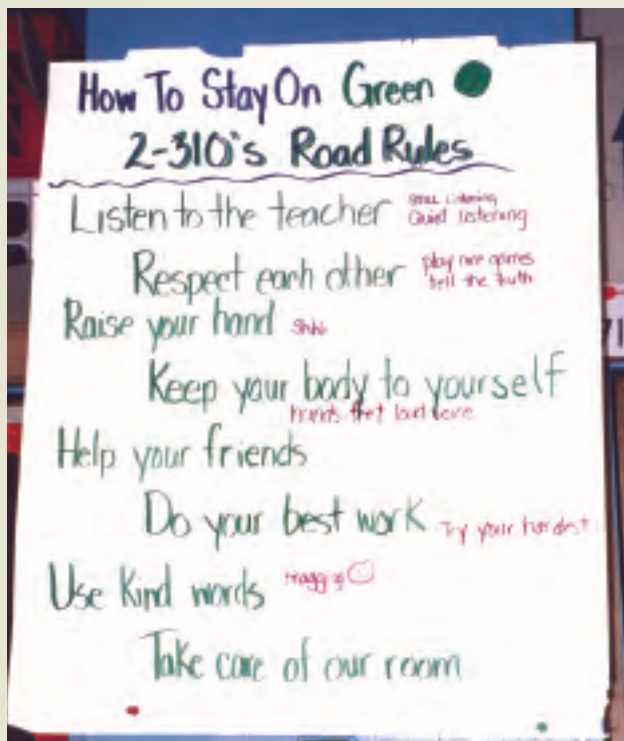 How To Stay On Green
2-310's Road Rules
Listen to the teacher
Quiet listening
Respect each other play nice games
tell the truth
Raise your hand Shhh
Keep your body to yourself
hands feet
Help your friends
Do your best work Try your hardest
Use Kind words
Take care of our room